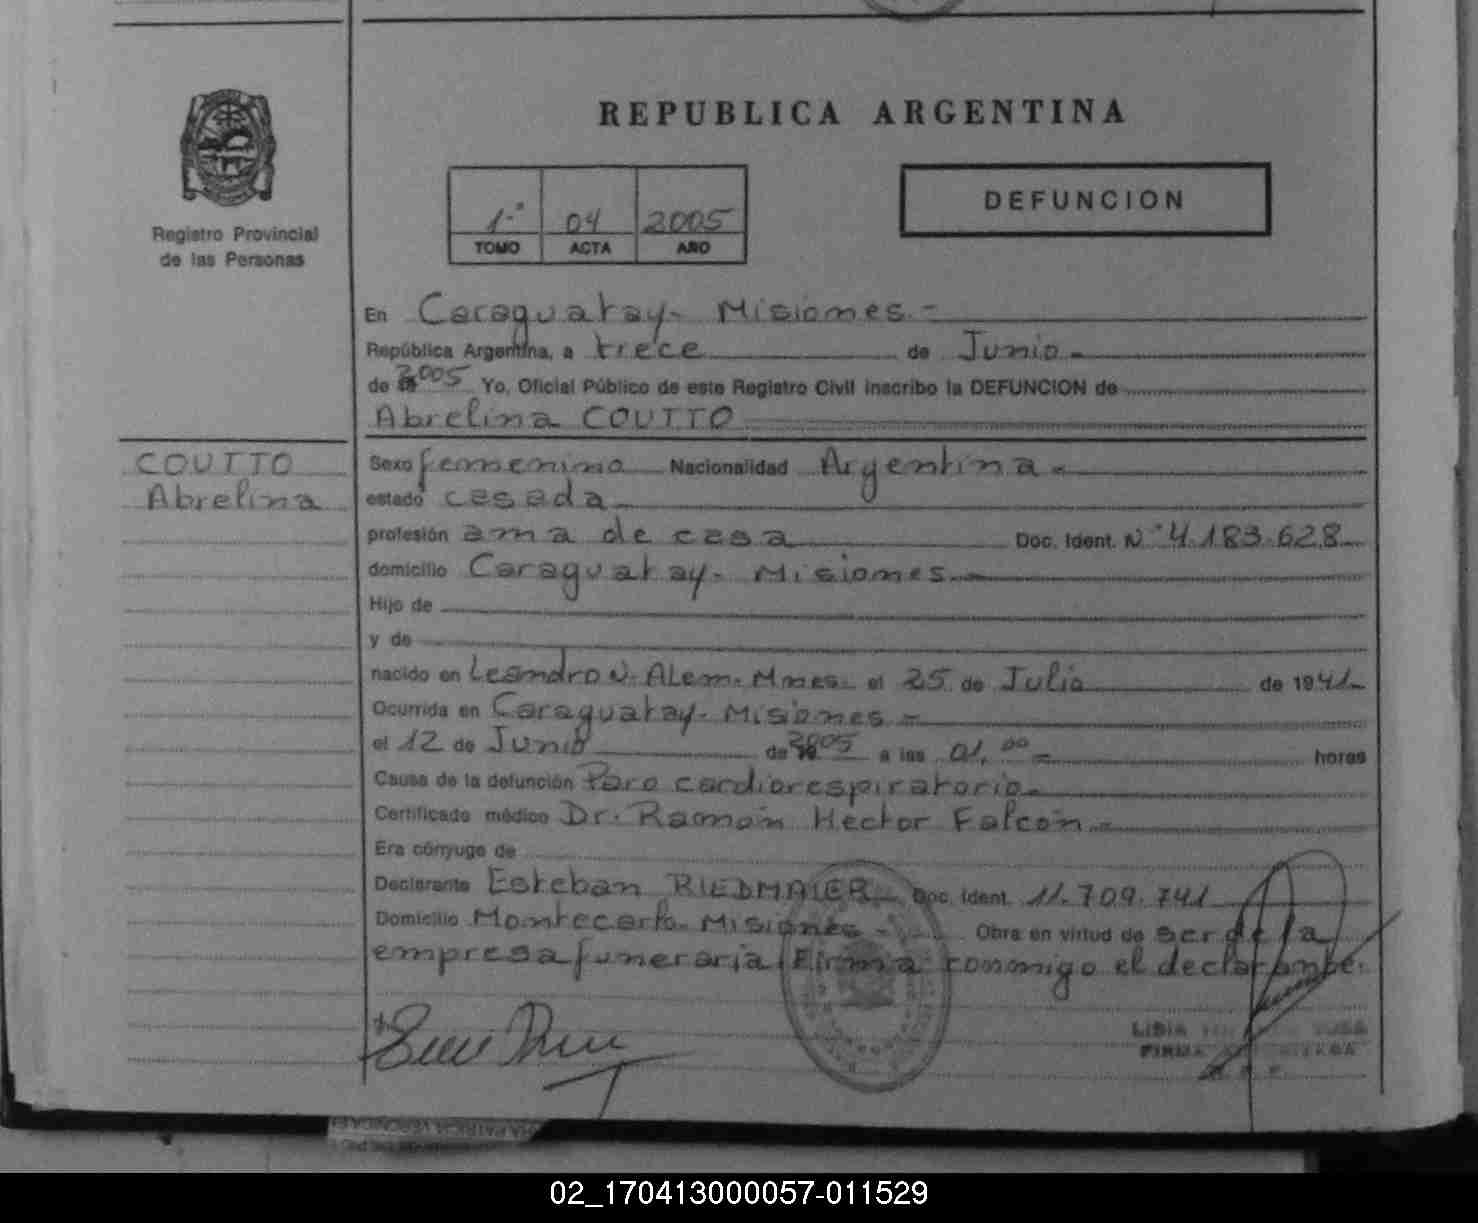 REPUBLICA ARGENTINA
Registro Provincial
de las Personas
1.º 04 2005
TOMO ACTA AÑO
DEFUNCION
En Caraguatay- Misiones.-
República Argentina, a trece de Junio.-
de 2005 Yo, Oficial Público de este Registro Civil inscribo la DEFUNCION de
Abrelina COUTTO
COUTTO
Abrelina
Sexo femenino Nacionalidad Argentina.-
estado casada
profesión ama de casa Doc. Ident. Nº 4.183.628
domicilio Caraguatay- Misiones.-
Hijo de
y de
nacido en Leandro N. Alem. Mnes- el 25 de Julio de 1941-
Ocurrida en Caraguatay- Misiones.-
el 12 de Junio de 2005 a las 01,00 horas
Causa de la defunción Paro cardiorespiratorio.-
Certificado médico Dr. Ramón Hector Falcón.-
Era cónyuge de
Declarante Esteban RIEDMAIER Doc. Ident. 11.709.741
Domicilio Montecarlo- Misiones- Obra en virtud de ser de la
empresa funeraria. Firma conmigo el declarante.
LIDIA
FIRMA
02_170413000057-011529